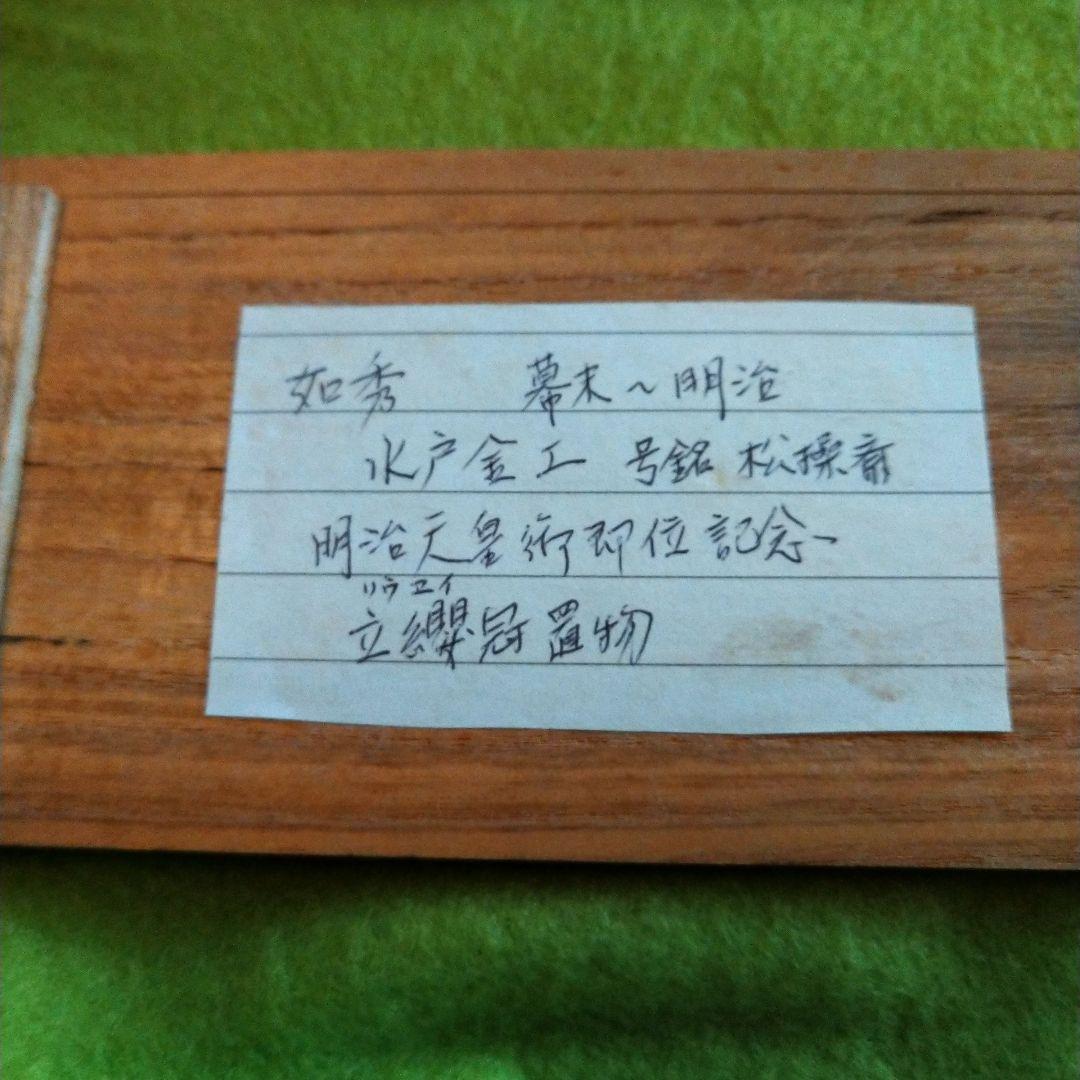 如秀 幕末~明治
水戸金工 号銘 松操斎
明治天皇御即位記念
リウエイ
立纓冠置物